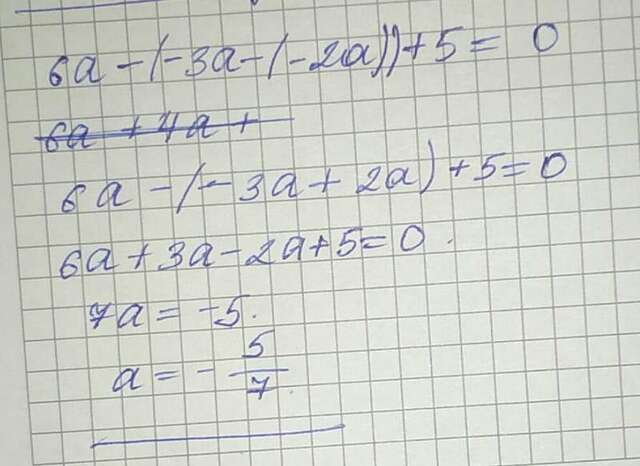 6a-(-3a-(-2a))+5=0
6a+4a+
6a-(-3a+2a)+5=0
6a+3a-2a+5=0.
7a=-5.
a=-5/7.